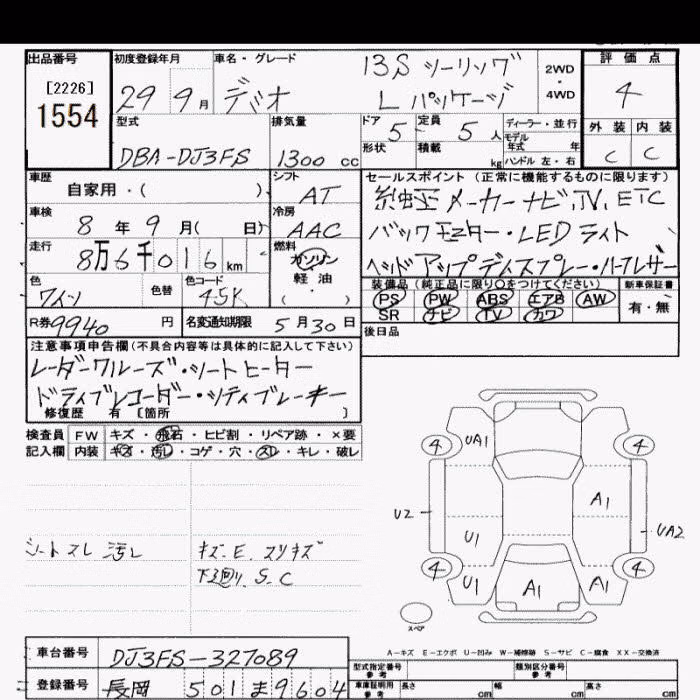 出品番号
[2226]
1554
初度登録年月
29 9月
車名・グレード
デミオ
13S ツーリング
L パッケージ
2WD
・
4WD
評価点
4
外装 内装
C C
型式
DBA-DJ3FS
排気量
1300 cc
ドア 5
形状
定員 5 人
積載 kg
ディーラー・並行
モデル年式 年
ハンドル 左・右
車歴
自家用・( )
シフト
AT
車検
8 年 9 月( 日)
冷房
AAC
走行
8万6千016 km
燃料
ガソリン
軽油
( )
色
ワイン
色替
色コード
45K
R券 9940 円
名変通知期限 5月30日
セールスポイント (正常に機能するものに限ります)
純正メーカーナビ, TV, ETC
バックモニター・LEDライト
ヘッドアップディスプレー・ハーフレザー
装備品 (純正品に限り○をつけてください)
PS PW ABS エアB AW
SR ナビ TV カワ
新車保証書
有・無
後日品
注意事項申告欄 (不具合内容等は具体的に記入して下さい)
レーダークルーズ・シートヒーター
ドライブレコーダー・シティブレーキ
修復歴 有 [箇所 ]
検査員 FW キズ・飛石・ヒビ割・リペア跡・×要
記入欄 内装 キズ・汚レ・コゲ・穴・スレ・キレ・破レ
シートスレ 汚レ
キズ.E. スリキズ
下廻り S.C
4 UA1 4
A1
U2 U1 UA2
4 U1 A1 A1 4
スペア
A−キズ E−エクボ U−凹み W−補修跡 S−サビ C−腐食 XX−交換済
車台番号 DJ3FS-327089
登録番号 長岡 501 ま 9604
型式指定番号 参考
類別区分番号 参考
車庫証明用 参考 長さ cm 幅 cm 高さ cm